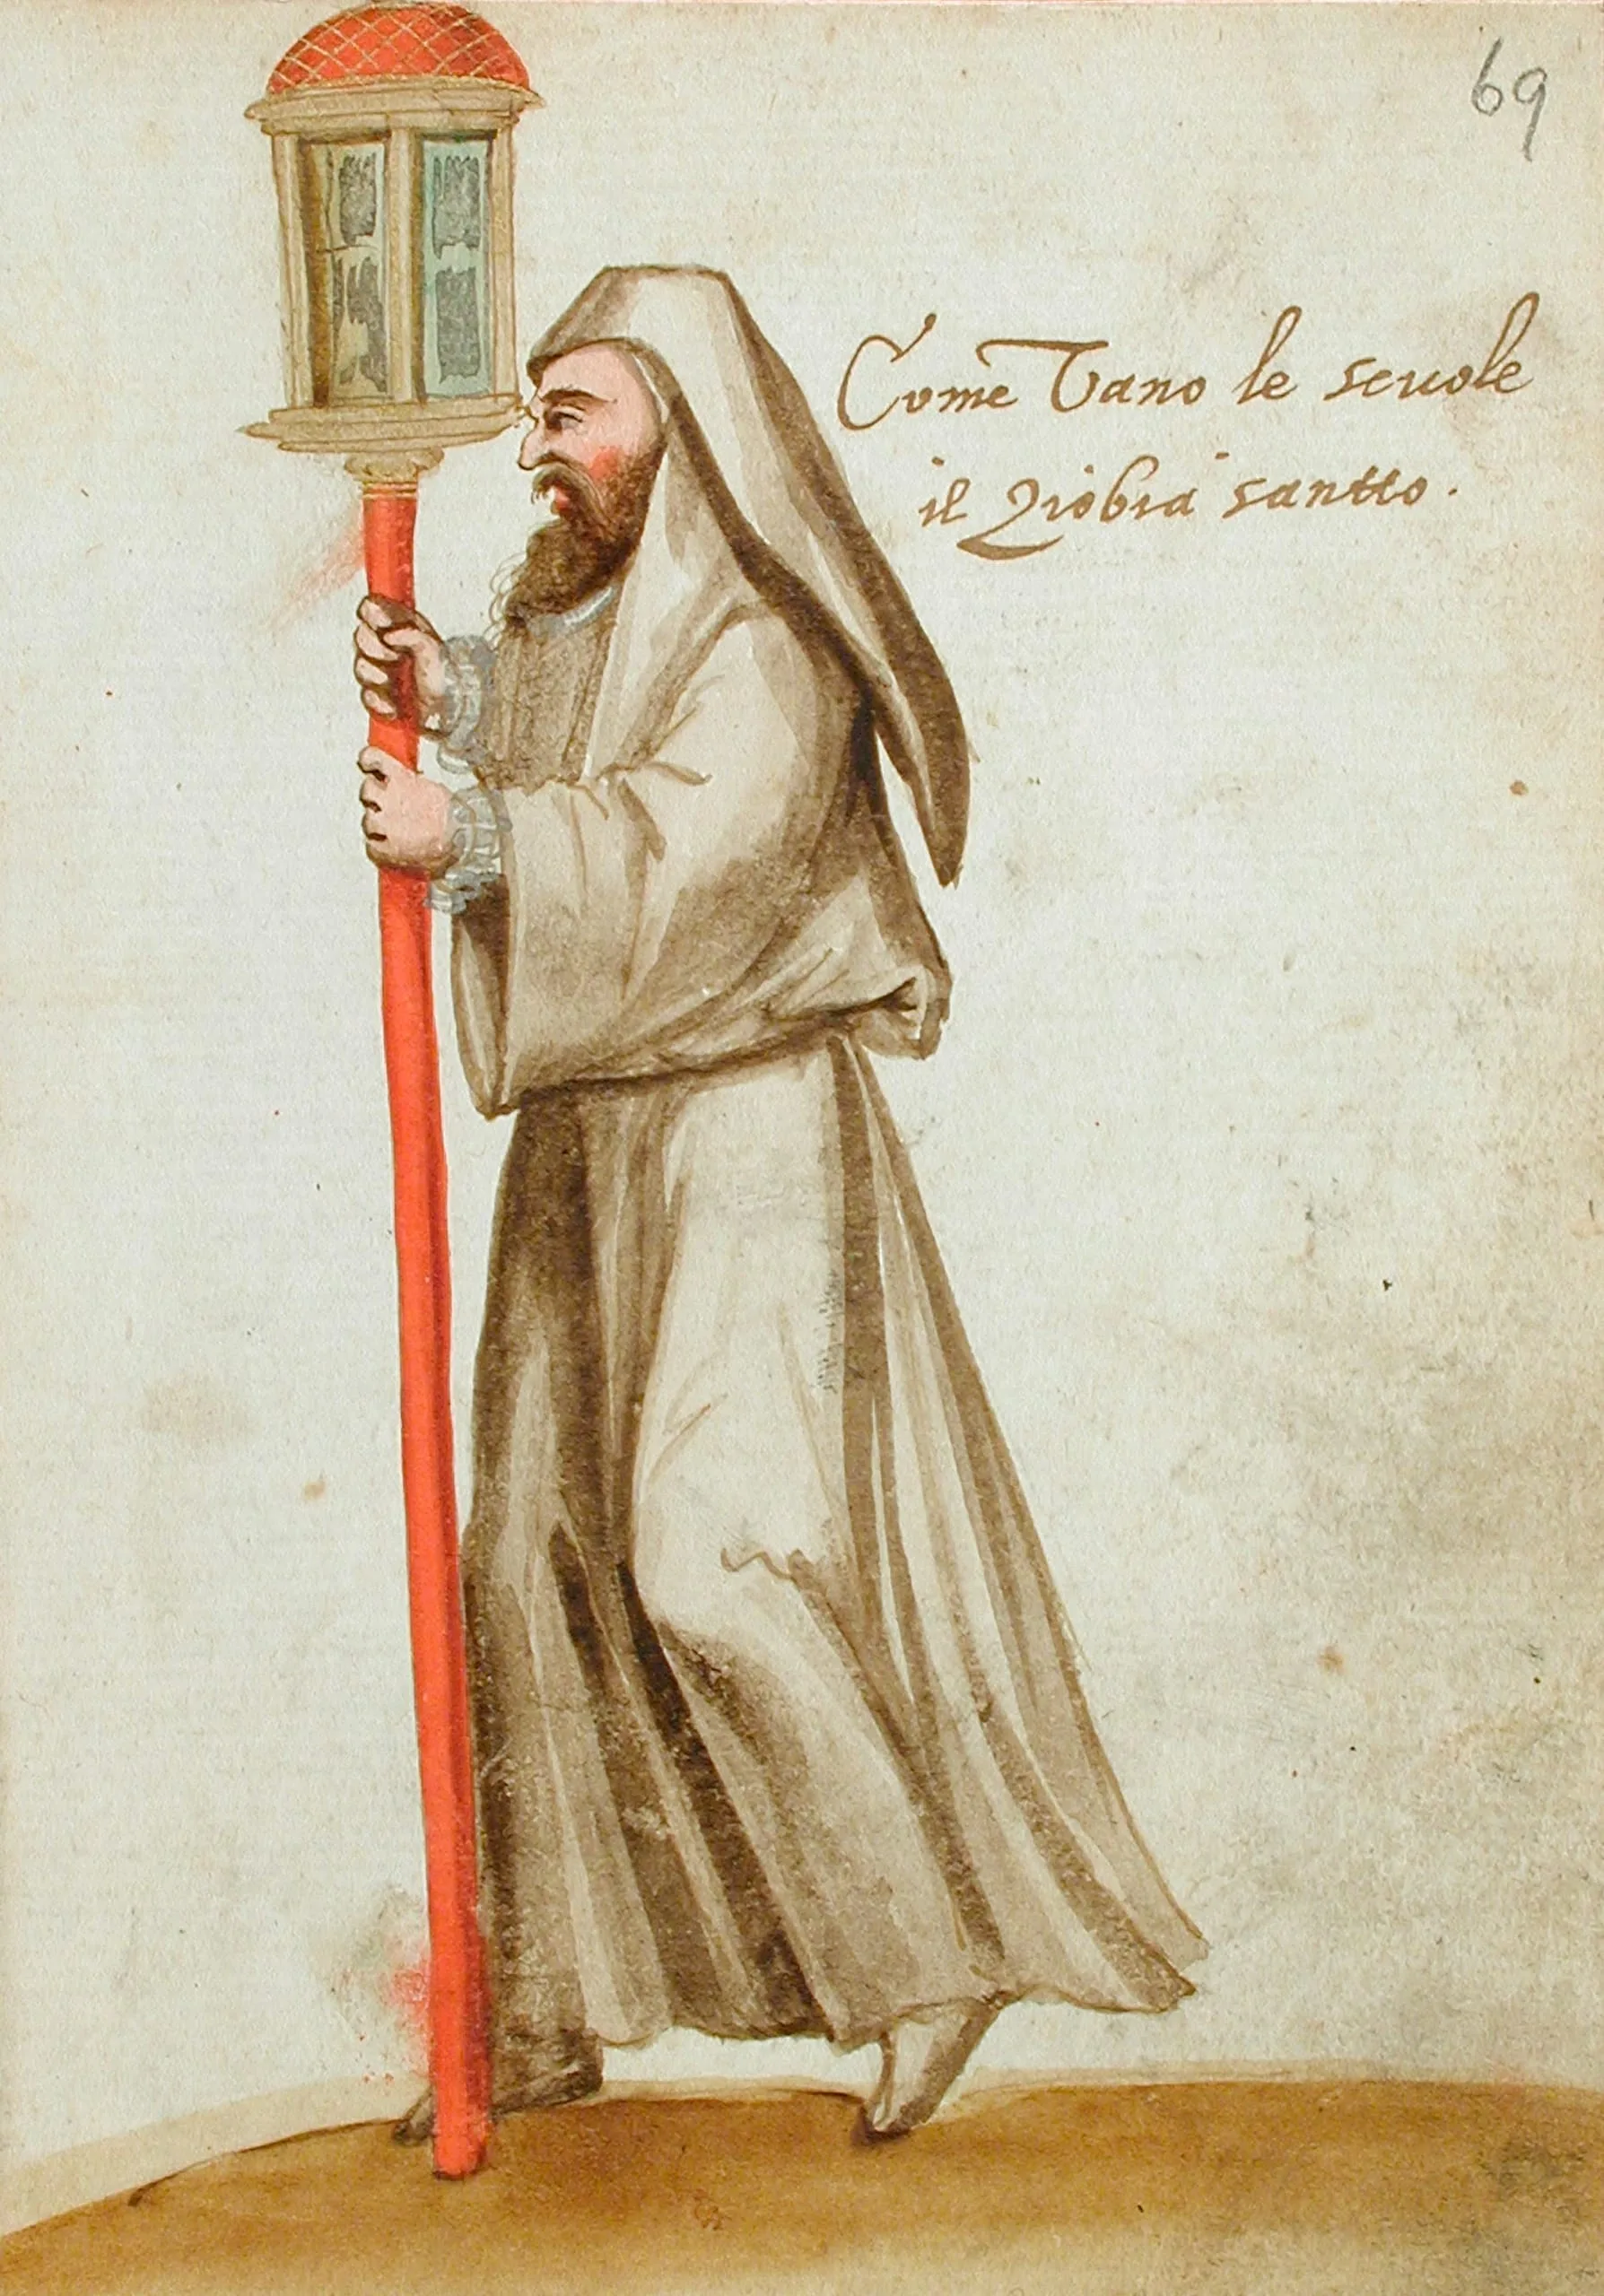 69
Come Vano le scuole
il Ziobia santto.